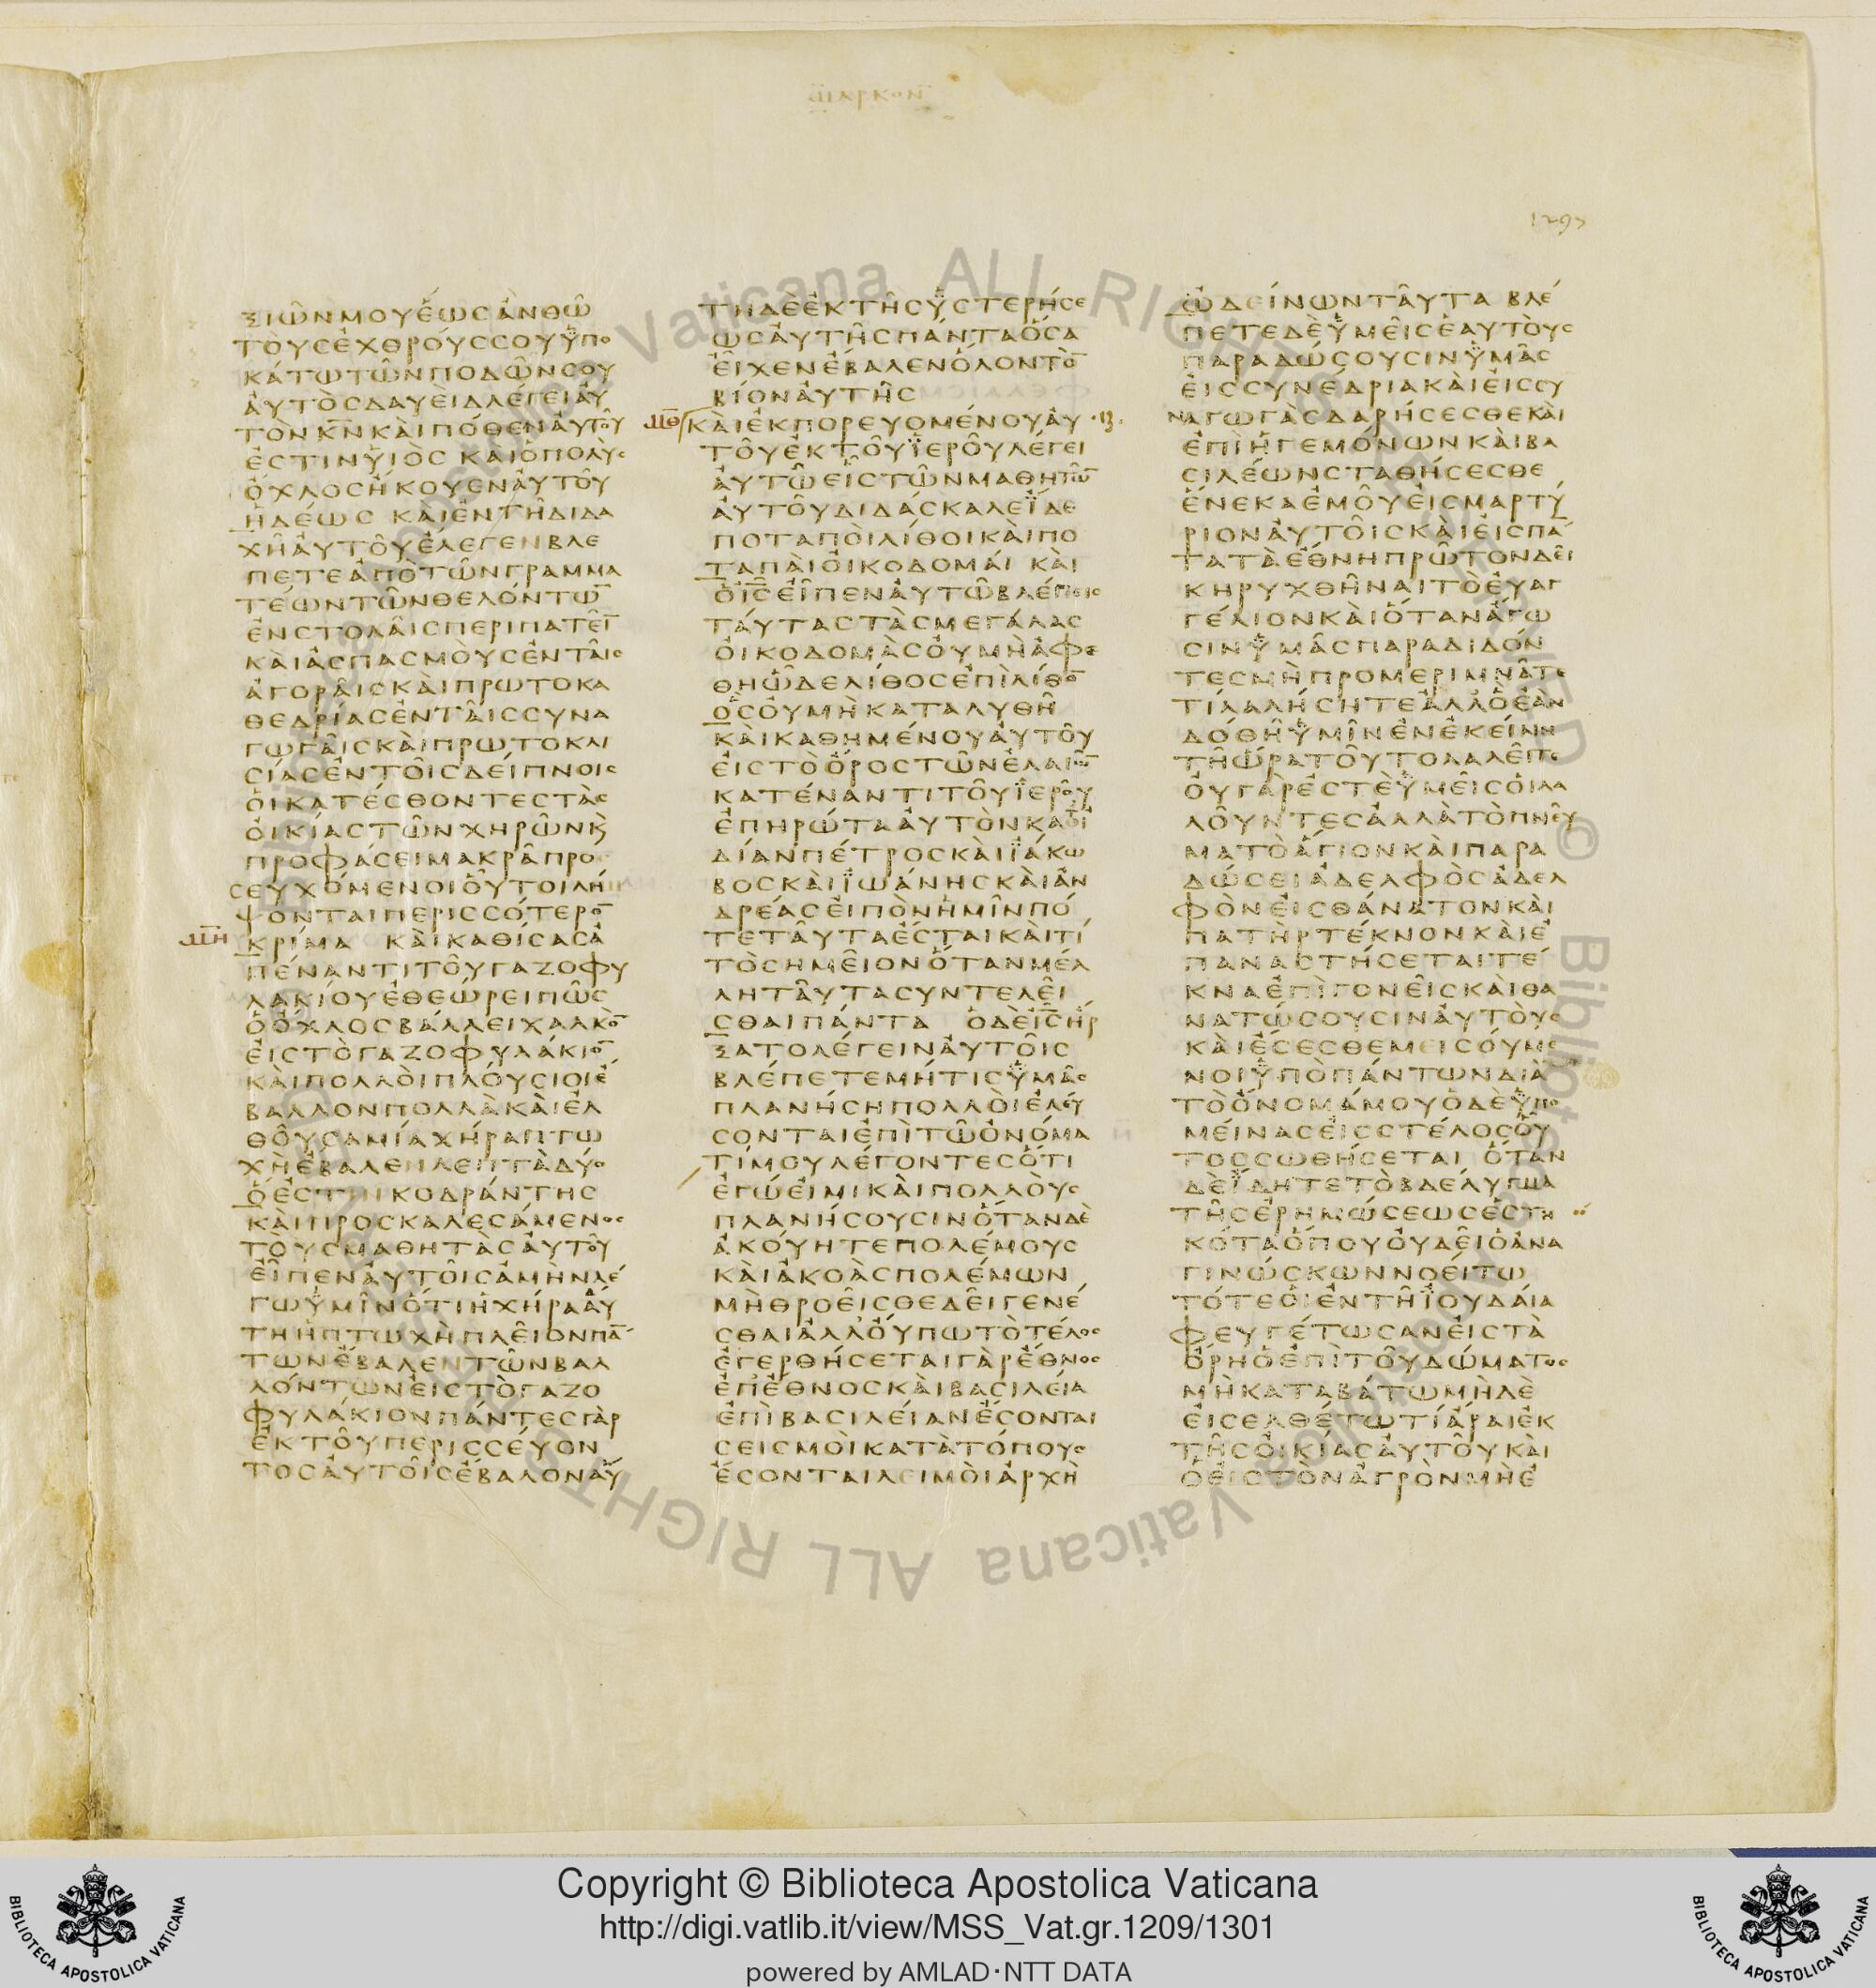 ΜΑΡΚΟΝ
1297
ΞΙΩΝΜΟΥΕΩΣΑΝΘΩ
ΤΟΥΣΕΧΘΡΟΥΣΣΟΥΫΠΟ
ΚΑΤΩΤΩΝΠΟΔΩΝΣΟΥ
ΑΥΤΟΣΔΑΥΕΙΔΛΕΓΕΙΑΥ
ΤΟΝΚ̅Ν̅ΚΑΙΠΟΘΕΝΑΥΤΟΥ
ΕΣΤΙΝΥΙΟΣ ΚΑΙΟΠΟΛΥΣ
ΟΧΛΟΣΗΚΟΥΕΝΑΥΤΟΥ
ΗΔΕΩΣ ΚΑΙΕΝΤΗΔΙΔΑ
ΧΗΑΥΤΟΥΕΛΕΓΕΝΒΛΕ
ΠΕΤΕΑΠΟΤΩΝΓΡΑΜΜΑ
ΤΕΩΝΤΩΝΘΕΛΟΝΤΩ̅
ΕΝΣΤΟΛΑΙΣΠΕΡΙΠΑΤΕΙ̅
ΚΑΙΑΣΠΑΣΜΟΥΣΕΝΤΑΙΣ
ΑΓΟΡΑΙΣΚΑΙΠΡΩΤΟΚΑ
ΘΕΔΡΙΑΣΕΝΤΑΙΣΣΥΝΑ
ΓΩΓΑΙΣΚΑΙΠΡΩΤΟΚΛΙ
ΣΙΑΣΕΝΤΟΙΣΔΕΙΠΝΟΙΣ
ΟΙΚΑΤΕΣΘΟΝΤΕΣΤΑΣ
ΟΙΚΙΑΣΤΩΝΧΗΡΩΝΚ
ΠΡΟΦΑΣΕΙΜΑΚΡΑΠΡΟ
ΣΕΥΧΟΜΕΝΟΙΟΥΤΟΙΛΗ
ΨΟΝΤΑΙΠΕΡΙΣΣΟΤΕΡΟ̅
ΜΗ ΚΡΙΜΑ ΚΑΙΚΑΘΙΣΑΣΑ
ΠΕΝΑΝΤΙΤΟΥΓΑΖΟΦΥ
ΛΑΚΙΟΥΕΘΕΩΡΕΙΠΩΣ
ΟΟΧΛΟΣΒΑΛΛΕΙΧΑΛΚΟ̅
ΕΙΣΤΟΓΑΖΟΦΥΛΑΚΙΟ̅
ΚΑΙΠΟΛΛΟΙΠΛΟΥΣΙΟΙΕ
ΒΑΛΛΟΝΠΟΛΛΑΚΑΙΕΛ
ΘΟΥΣΑΜΙΑΧΗΡΑΠΤΩ
ΧΗΕΒΑΛΕΝΛΕΠΤΑΔΥΟ
ΟΕΣΤΙΝΚΟΔΡΑΝΤΗΣ
ΚΑΙΠΡΟΣΚΑΛΕΣΑΜΕΝΟΣ
ΤΟΥΣΜΑΘΗΤΑΣΑΥΤΟΥ
ΕΙΠΕΝΑΥΤΟΙΣΑΜΗΝΛΕ
ΓΩΫΜΙΝΟΤΙΗΧΗΡΑΑΥ
ΤΗΗΠΤΩΧΗΠΛΕΙΟΝΠΑ̅
ΤΩΝΕΒΑΛΕΝΤΩΝΒΑΛ
ΛΟΝΤΩΝΕΙΣΤΟΓΑΖΟ
ΦΥΛΑΚΙΟΝΠΑΝΤΕΣΓΑΡ
ΕΚΤΟΥΠΕΡΙΣΣΕΥΟΝ
ΤΟΣΑΥΤΟΙΣΕΒΑΛΟΝΑΥ
ΤΗΔΕΕΚΤΗΣΫΣΤΕΡΗΣΕ
ΩΣΑΥΤΗΣΠΑΝΤΑΟΣΑ
ΕΙΧΕΝΕΒΑΛΕΝΟΛΟΝΤΟ̅
ΒΙΟΝΑΥΤΗΣ
ΜΘ ΚΑΙΕΚΠΟΡΕΥΟΜΕΝΟΥΑΥ
ΤΟΥΕΚΤΟΥΪΕΡΟΥΛΕΓΕΙ
ΑΥΤΩΕΙΣΤΩΝΜΑΘΗΤΩ̅
ΑΥΤΟΥΔΙΔΑΣΚΑΛΕΪΔΕ
ΠΟΤΑΠΟΙΛΙΘΟΙΚΑΙΠΟ
ΤΑΠΑΙΟΙΚΟΔΟΜΑΙ ΚΑΙ
ΟΙ̅Σ̅ΕΙΠΕΝΑΥΤΩΒΛΕΠΕΙΣ
ΤΑΥΤΑΣΤΑΣΜΕΓΑΛΑΣ
ΟΙΚΟΔΟΜΑΣΟΥΜΗΑΦΕ
ΘΗΩΔΕΛΙΘΟΣΕΠΙΛΙΘΟ̅
ΟΣΟΥΜΗΚΑΤΑΛΥΘΗ
ΚΑΙΚΑΘΗΜΕΝΟΥΑΥΤΟΥ
ΕΙΣΤΟΟΡΟΣΤΩΝΕΛΑΙΩ̅
ΚΑΤΕΝΑΝΤΙΤΟΥΪΕΡΟΥ
ΕΠΗΡΩΤΑΑΥΤΟΝΚΑΘΙ
ΔΙΑΝΠΕΤΡΟΣΚΑΙΪΑΚΩ
ΒΟΣΚΑΙΪΩΑΝΗΣΚΑΙΑΝ
ΔΡΕΑΣΕΙΠΟΝΗΜΙΝΠΟ
ΤΕΤΑΥΤΑΕΣΤΑΙΚΑΙΤΙ
ΤΟΣΗΜΕΙΟΝΟΤΑΝΜΕΛ
ΛΗΤΑΥΤΑΣΥΝΤΕΛΕΙ
ΣΘΑΙΠΑΝΤΑ ΟΔΕΙ̅Σ̅ΗΡ
ΞΑΤΟΛΕΓΕΙΝΑΥΤΟΙΣ
ΒΛΕΠΕΤΕΜΗΤΙΣΫΜΑΣ
ΠΛΑΝΗΣΗΠΟΛΛΟΙΕΛΕΥ
ΣΟΝΤΑΙΕΠΙΤΩΟΝΟΜΑ
ΤΙΜΟΥΛΕΓΟΝΤΕΣΟΤΙ
ΕΓΩΕΙΜΙΚΑΙΠΟΛΛΟΥΣ
ΠΛΑΝΗΣΟΥΣΙΝΟΤΑΝΔΕ
ΑΚΟΥΗΤΕΠΟΛΕΜΟΥΣ
ΚΑΙΑΚΟΑΣΠΟΛΕΜΩΝ
ΜΗΘΡΟΕΙΣΘΕΔΕΙΓΕΝΕ
ΣΘΑΙΑΛΛΟΥΠΩΤΟΤΕΛΟΣ
ΕΓΕΡΘΗΣΕΤΑΙΓΑΡΕΘΝΟΣ
ΕΠΕΘΝΟΣΚΑΙΒΑΣΙΛΕΙΑ
ΕΠΙΒΑΣΙΛΕΙΑΝΕΣΟΝΤΑΙ
ΣΕΙΣΜΟΙΚΑΤΑΤΟΠΟΥΣ
ΕΣΟΝΤΑΙΛΕΙΜΟΙΑΡΧΗ
ΩΔΕΙΝΩΝΤΑΥΤΑ ΒΛΕ
ΠΕΤΕΔΕΫΜΕΙΣΕΑΥΤΟΥΣ
ΠΑΡΑΔΩΣΟΥΣΙΝΫΜΑΣ
ΕΙΣΣΥΝΕΔΡΙΑΚΑΙΕΙΣΣΥ
ΝΑΓΩΓΑΣΔΑΡΗΣΕΣΘΕΚΑΙ
ΕΠΙΗΓΕΜΟΝΩΝΚΑΙΒΑ
ΣΙΛΕΩΝΣΤΑΘΗΣΕΣΘΕ
ΕΝΕΚΑΕΜΟΥΕΙΣΜΑΡΤΥ
ΡΙΟΝΑΥΤΟΙΣΚΑΙΕΙΣΠΑ̅
ΤΑΤΑΕΘΝΗΠΡΩΤΟΝΔΕΙ
ΚΗΡΥΧΘΗΝΑΙΤΟΕΥΑΓ
ΓΕΛΙΟΝΚΑΙΟΤΑΝΑΓΩ
ΣΙΝΫΜΑΣΠΑΡΑΔΙΔΟΝ
ΤΕΣΜΗΠΡΟΜΕΡΙΜΝΑΤΕ
ΤΙΛΑΛΗΣΗΤΕΑΛΛΟΕΑΝ
ΔΟΘΗΫΜΙΝΕΝΕΚΕΙΝΗ
ΤΗΩΡΑΤΟΥΤΟΛΑΛΕΙΤΕ
ΟΥΓΑΡΕΣΤΕΫΜΕΙΣΟΙΛΑ
ΛΟΥΝΤΕΣΑΛΛΑΤΟΠΝΕΥ
ΜΑΤΟΑΓΙΟΝΚΑΙΠΑΡΑ
ΔΩΣΕΙΑΔΕΛΦΟΣΑΔΕΛ
ΦΟΝΕΙΣΘΑΝΑΤΟΝΚΑΙ
ΠΑΤΗΡΤΕΚΝΟΝΚΑΙΕ
ΠΑΝΑΣΤΗΣΕΤΑΙΤΕ
ΚΝΑΕΠΙΓΟΝΕΙΣΚΑΙΘΑ
ΝΑΤΩΣΟΥΣΙΝΑΥΤΟΥΣ
ΚΑΙΕΣΕΣΘΕΜΕΙΣΟΥΜΕ
ΝΟΙΫΠΟΠΑΝΤΩΝΔΙΑ
ΤΟΟΝΟΜΑΜΟΥΟΔΕΫΠΟ
ΜΕΙΝΑΣΕΙΣΤΕΛΟΣΟΥ
ΤΟΣΣΩΘΗΣΕΤΑΙ ΟΤΑΝ
ΔΕΪΔΗΤΕΤΟΒΔΕΛΥΓΜΑ
ΤΗΣΕΡΗΜΩΣΕΩΣΕΣΤΗ
ΚΟΤΑΟΠΟΥΟΥΔΕΙΟΑΝΑ
ΓΙΝΩΣΚΩΝΝΟΕΙΤΩ
ΤΟΤΕΟΙΕΝΤΗΪΟΥΔΑΙΑ
ΦΕΥΓΕΤΩΣΑΝΕΙΣΤΑ
ΟΡΗΟΕΠΙΤΟΥΔΩΜΑΤΟΣ
ΜΗΚΑΤΑΒΑΤΩΜΗΔΕ
ΕΙΣΕΛΘΕΤΩΤΙΑΡΑΙΕΚ
ΤΗΣΟΙΚΙΑΣΑΥΤΟΥΚΑΙ
ΟΕΙΣΤΟΝΑΓΡΟΝΜΗΕ
© Biblioteca Apostolica Vaticana ALL RIGHTS
BIBLIOTECA APOSTOLICA VATICANA
Copyright © Biblioteca Apostolica Vaticana
http://digi.vatlib.it/view/MSS_Vat.gr.1209/1301
powered by AMLAD·NTT DATA
BIBLIOTECA APOSTOLICA VATICANA